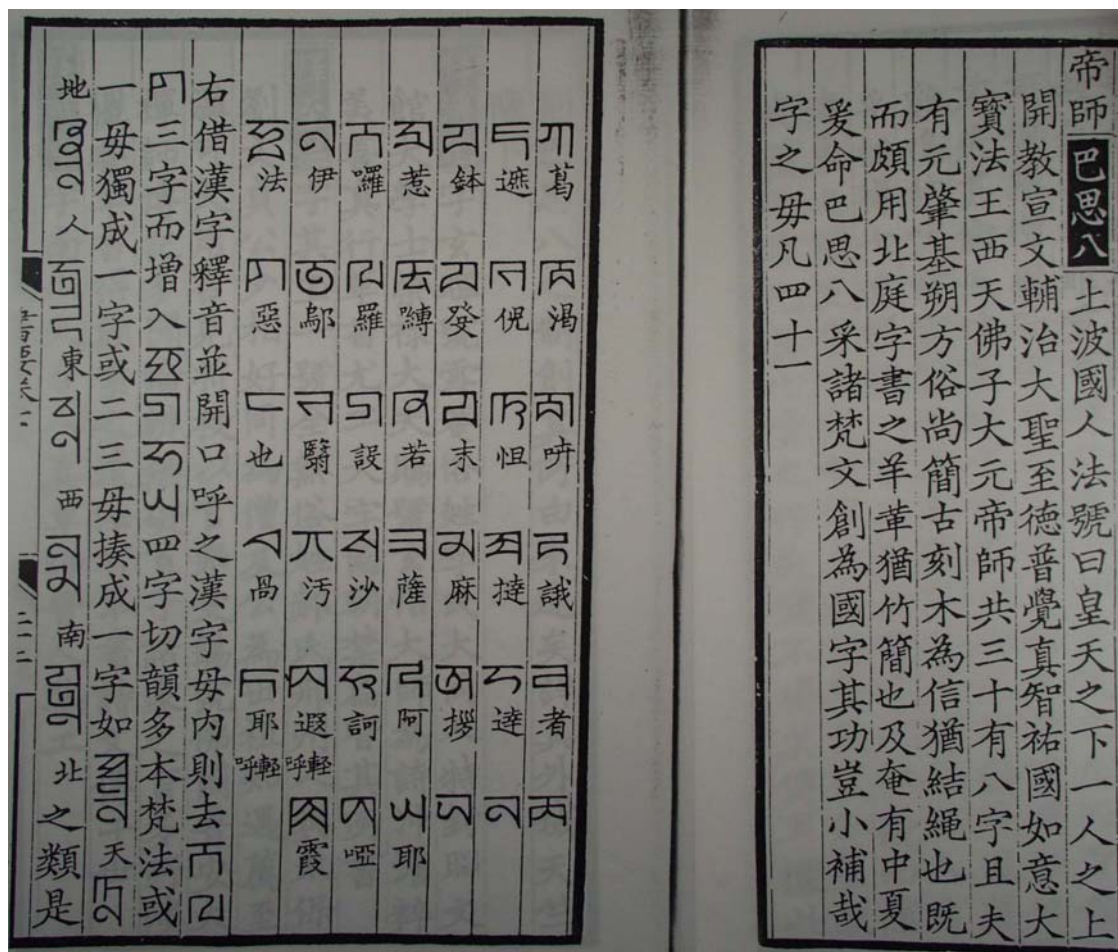 帝師巴思八土波國人法號曰皇天之下一人之上
開教宣文輔治大聖至德普覺真智祐國如意大
寶法王西天佛子大元帝師共三十有八字且夫
有元肇基朔方俗尚簡古刻木為信猶結繩也既
而頗用北庭字書之羊革猶竹簡也及奄有中夏
爰命巴思八采諸梵文創為國字其功豈小補哉
字之毋凡四十一
ꡀ葛 ꡁ渴 ꡂ ꡃ誐 ꡄ者 ꡅ
ꡆ遮 ꡇ倪 ꡈ怛 ꡉ撻 ꡊ達 ꡋ
ꡌ鉢 ꡍ發 ꡎ末 ꡏ麻 ꡐ拶 ꡑ
ꡒ惹 ꡓ嚩 ꡔ若 ꡕ薩 ꡖ阿 ꡗ耶
ꡘ囉 ꡙ羅 ꡚ設 ꡛ沙 ꡜ訶 ꡝ啞
ꡞ伊 ꡟ鄔 ꡠ翳 ꡡ污 ꡢ遐輕呼 ꡣ霞
ꡤ法 ꡥ惡 ꡦ也 ꡧ咼 ꡨ耶輕呼
右借漢字釋音並開口呼之漢字毋內則去
三字而增入 四字切韻多本梵法或
一毋獨成一字或二三毋揍成一字如 天
地 人 東 西 南 北之類是